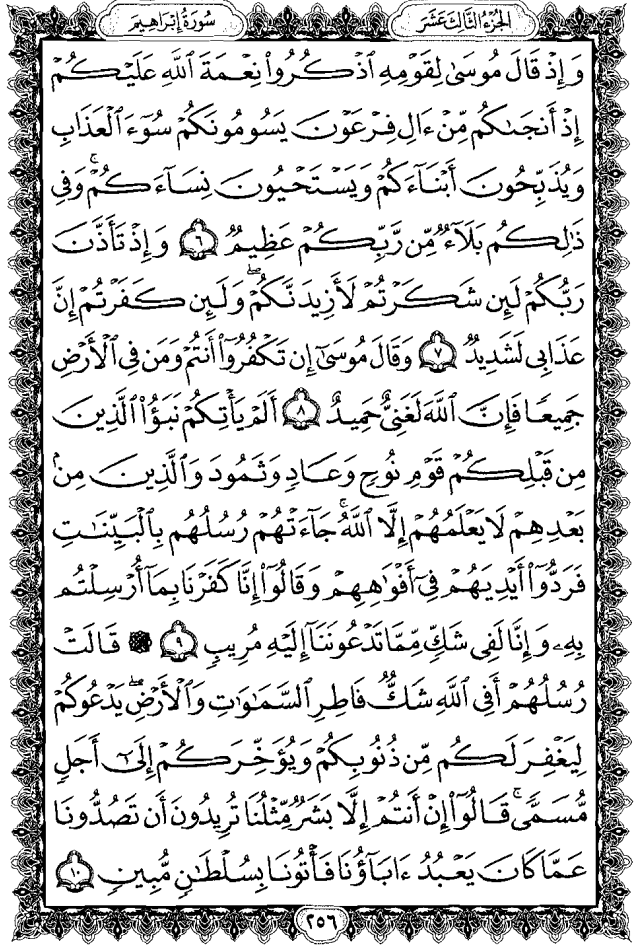 الجزء الثالث عشر
سورة إبراهيم
وَإِذْ قَالَ مُوسَىٰ لِقَوْمِهِ ٱذْكُرُوا۟ نِعْمَةَ ٱللَّهِ عَلَيْكُمْ
إِذْ أَنجَىٰكُم مِّنْ ءَالِ فِرْعَوْنَ يَسُومُونَكُمْ سُوٓءَ ٱلْعَذَابِ
وَيُذَبِّحُونَ أَبْنَآءَكُمْ وَيَسْتَحْيُونَ نِسَآءَكُمْ ۚ وَفِى
ذَٰلِكُم بَلَآءٌ مِّن رَّبِّكُمْ عَظِيمٌ ٦ وَإِذْ تَأَذَّنَ
رَبُّكُمْ لَئِن شَكَرْتُمْ لَأَزِيدَنَّكُمْ ۖ وَلَئِن كَفَرْتُمْ إِنَّ
عَذَابِى لَشَدِيدٌ ٧ وَقَالَ مُوسَىٰٓ إِن تَكْفُرُوٓا۟ أَنتُمْ وَمَن فِى ٱلْأَرْضِ
جَمِيعًا فَإِنَّ ٱللَّهَ لَغَنِىٌّ حَمِيدٌ ٨ أَلَمْ يَأْتِكُمْ نَبَؤُا۟ ٱلَّذِينَ
مِن قَبْلِكُمْ قَوْمِ نُوحٍ وَعَادٍ وَثَمُودَ وَٱلَّذِينَ مِنۢ
بَعْدِهِمْ لَا يَعْلَمُهُمْ إِلَّا ٱللَّهُ ۚ جَآءَتْهُمْ رُسُلُهُم بِٱلْبَيِّنَٰتِ
فَرَدُّوٓا۟ أَيْدِيَهُمْ فِىٓ أَفْوَٰهِهِمْ وَقَالُوٓا۟ إِنَّا كَفَرْنَا بِمَآ أُرْسِلْتُم
بِهِۦ وَإِنَّا لَفِى شَكٍّ مِّمَّا تَدْعُونَنَآ إِلَيْهِ مُرِيبٍ ٩ ۞ قَالَتْ
رُسُلُهُمْ أَفِى ٱللَّهِ شَكٌّ فَاطِرِ ٱلسَّمَٰوَٰتِ وَٱلْأَرْضِ ۖ يَدْعُوكُمْ
لِيَغْفِرَ لَكُم مِّن ذُنُوبِكُمْ وَيُؤَخِّرَكُمْ إِلَىٰٓ أَجَلٍ
مُّسَمًّى ۚ قَالُوٓا۟ إِنْ أَنتُمْ إِلَّا بَشَرٌ مِّثْلُنَا تُرِيدُونَ أَن تَصُدُّونَا
عَمَّا كَانَ يَعْبُدُ ءَابَآؤُنَا فَأْتُونَا بِسُلْطَٰنٍ مُّبِينٍ ١٠
٢٥٦